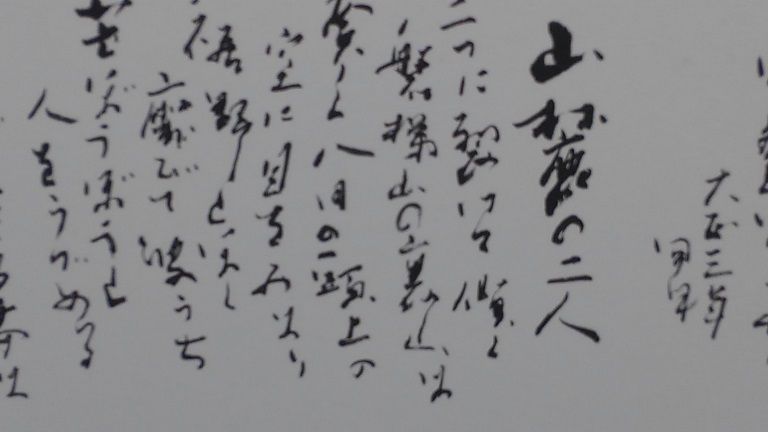 大正三年
山麓の二人
二つに裂けて傾く
磐梯山の裏山は
険しく八月の頭上の
空に目をみはり
裾野とほく
靡いて波うち
芒ぼうぼうと
人をうづめる
妻は